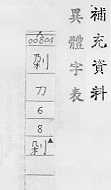 補充資料
異體字表
00804
剁
刀
6
8
剁